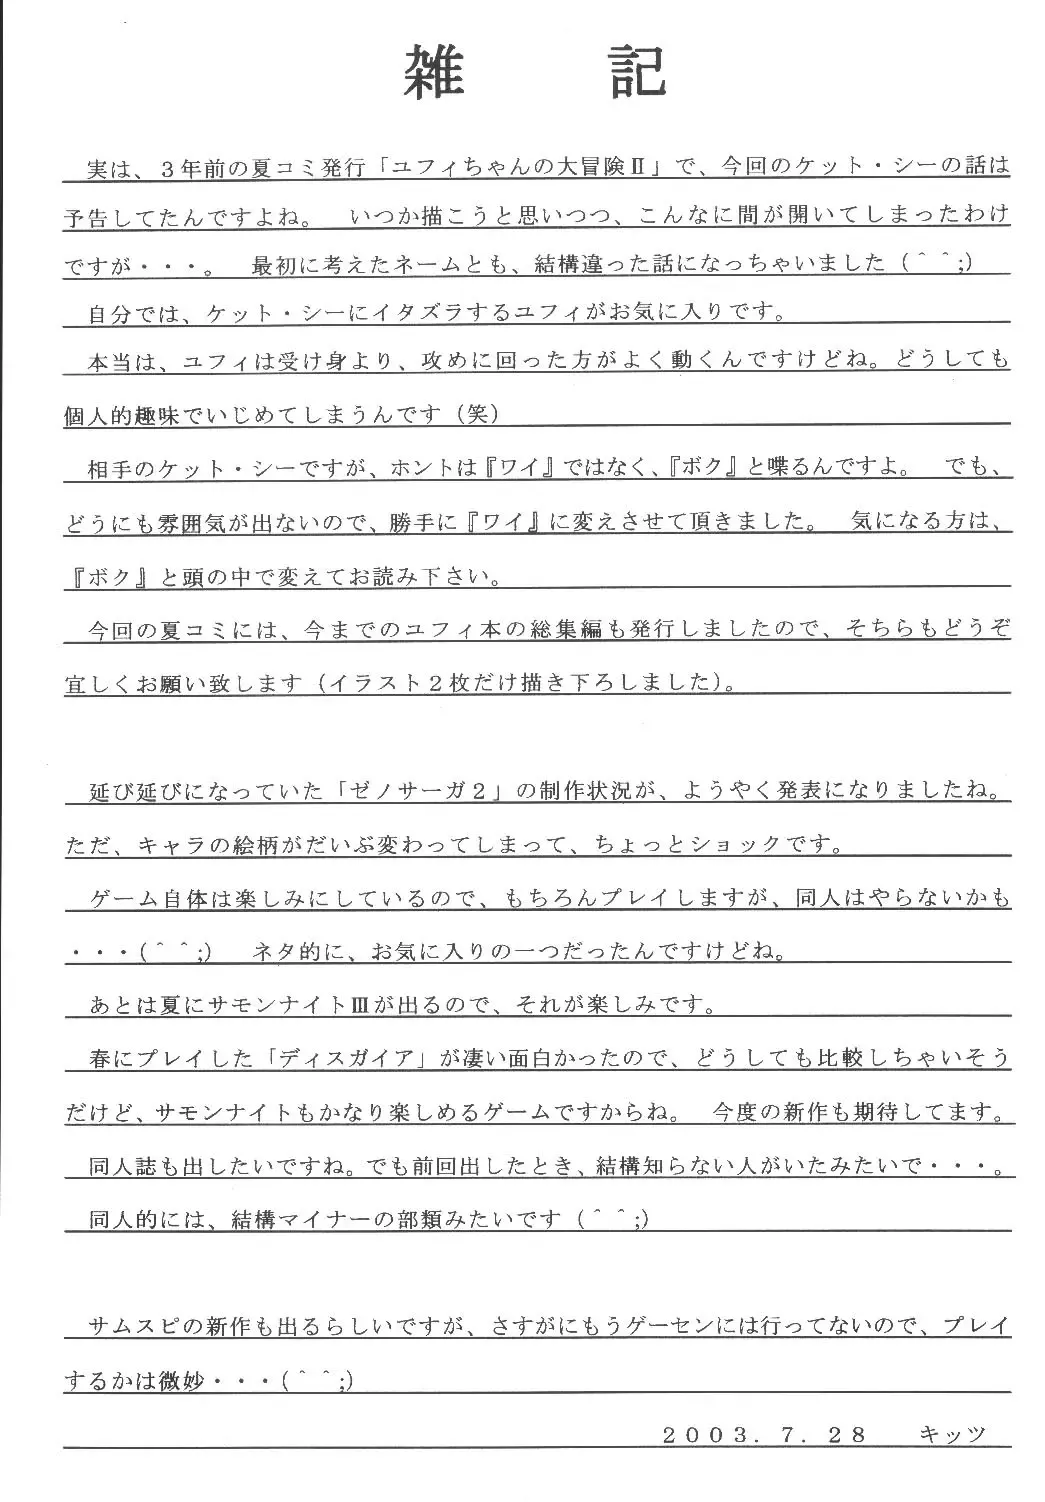 雑　記
実は、３年前の夏コミ発行「ユフィちゃんの大冒険Ⅱ」で、今回のケット・シーの話は
予告してたんですよね。　いつか描こうと思いつつ、こんなに間が開いてしまったわけ
ですが・・・。　最初に考えたネームとも、結構違った話になっちゃいました（＾＾;）
自分では、ケット・シーにイタズラするユフィがお気に入りです。
本当は、ユフィは受け身より、攻めに回った方がよく動くんですけどね。どうしても
個人的趣味でいじめてしまうんです（笑）
相手のケット・シーですが、ホントは『ワイ』ではなく、『ボク』と喋るんですよ。　でも、
どうにも雰囲気が出ないので、勝手に『ワイ』に変えさせて頂きました。　気になる方は、
『ボク』と頭の中で変えてお読み下さい。
今回の夏コミには、今までのユフィ本の総集編も発行しましたので、そちらもどうぞ
宜しくお願い致します（イラスト２枚だけ描き下ろしました）。
延び延びになっていた「ゼノサーガ２」の制作状況が、ようやく発表になりましたね。
ただ、キャラの絵柄がだいぶ変わってしまって、ちょっとショックです。
ゲーム自体は楽しみにしているので、もちろんプレイしますが、同人はやらないかも
・・・（＾＾;）　ネタ的に、お気に入りの一つだったんですけどね。
あとは夏にサモンナイトⅢが出るので、それが楽しみです。
春にプレイした「ディスガイア」が凄い面白かったので、どうしても比較しちゃいそう
だけど、サモンナイトもかなり楽しめるゲームですからね。　今度の新作も期待してます。
同人誌も出したいですね。でも前回出したとき、結構知らない人がいたみたいで・・・。
同人的には、結構マイナーの部類みたいです（＾＾;）
サムスピの新作も出るらしいですが、さすがにもうゲーセンには行ってないので、プレイ
するかは微妙・・・（＾＾;）
２００３．７．２８　　キッツ